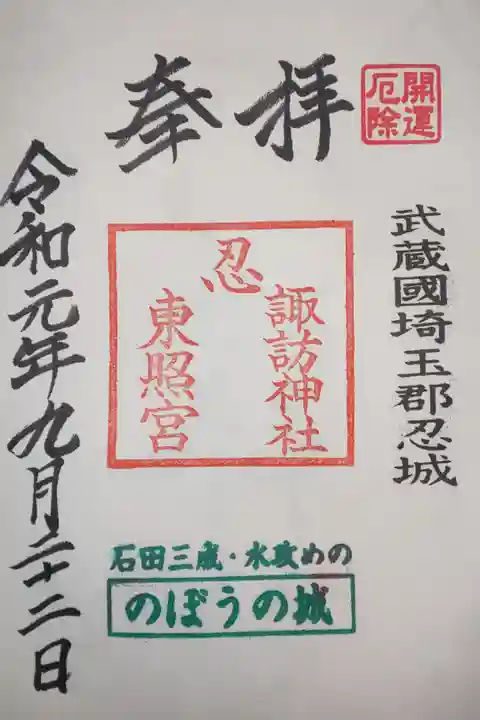 奉拝
開運
厄除
武蔵國埼玉郡忍城
忍
諏訪神社
東照宮
石田三成・水攻めの
のぼうの城
令和元年九月二十二日